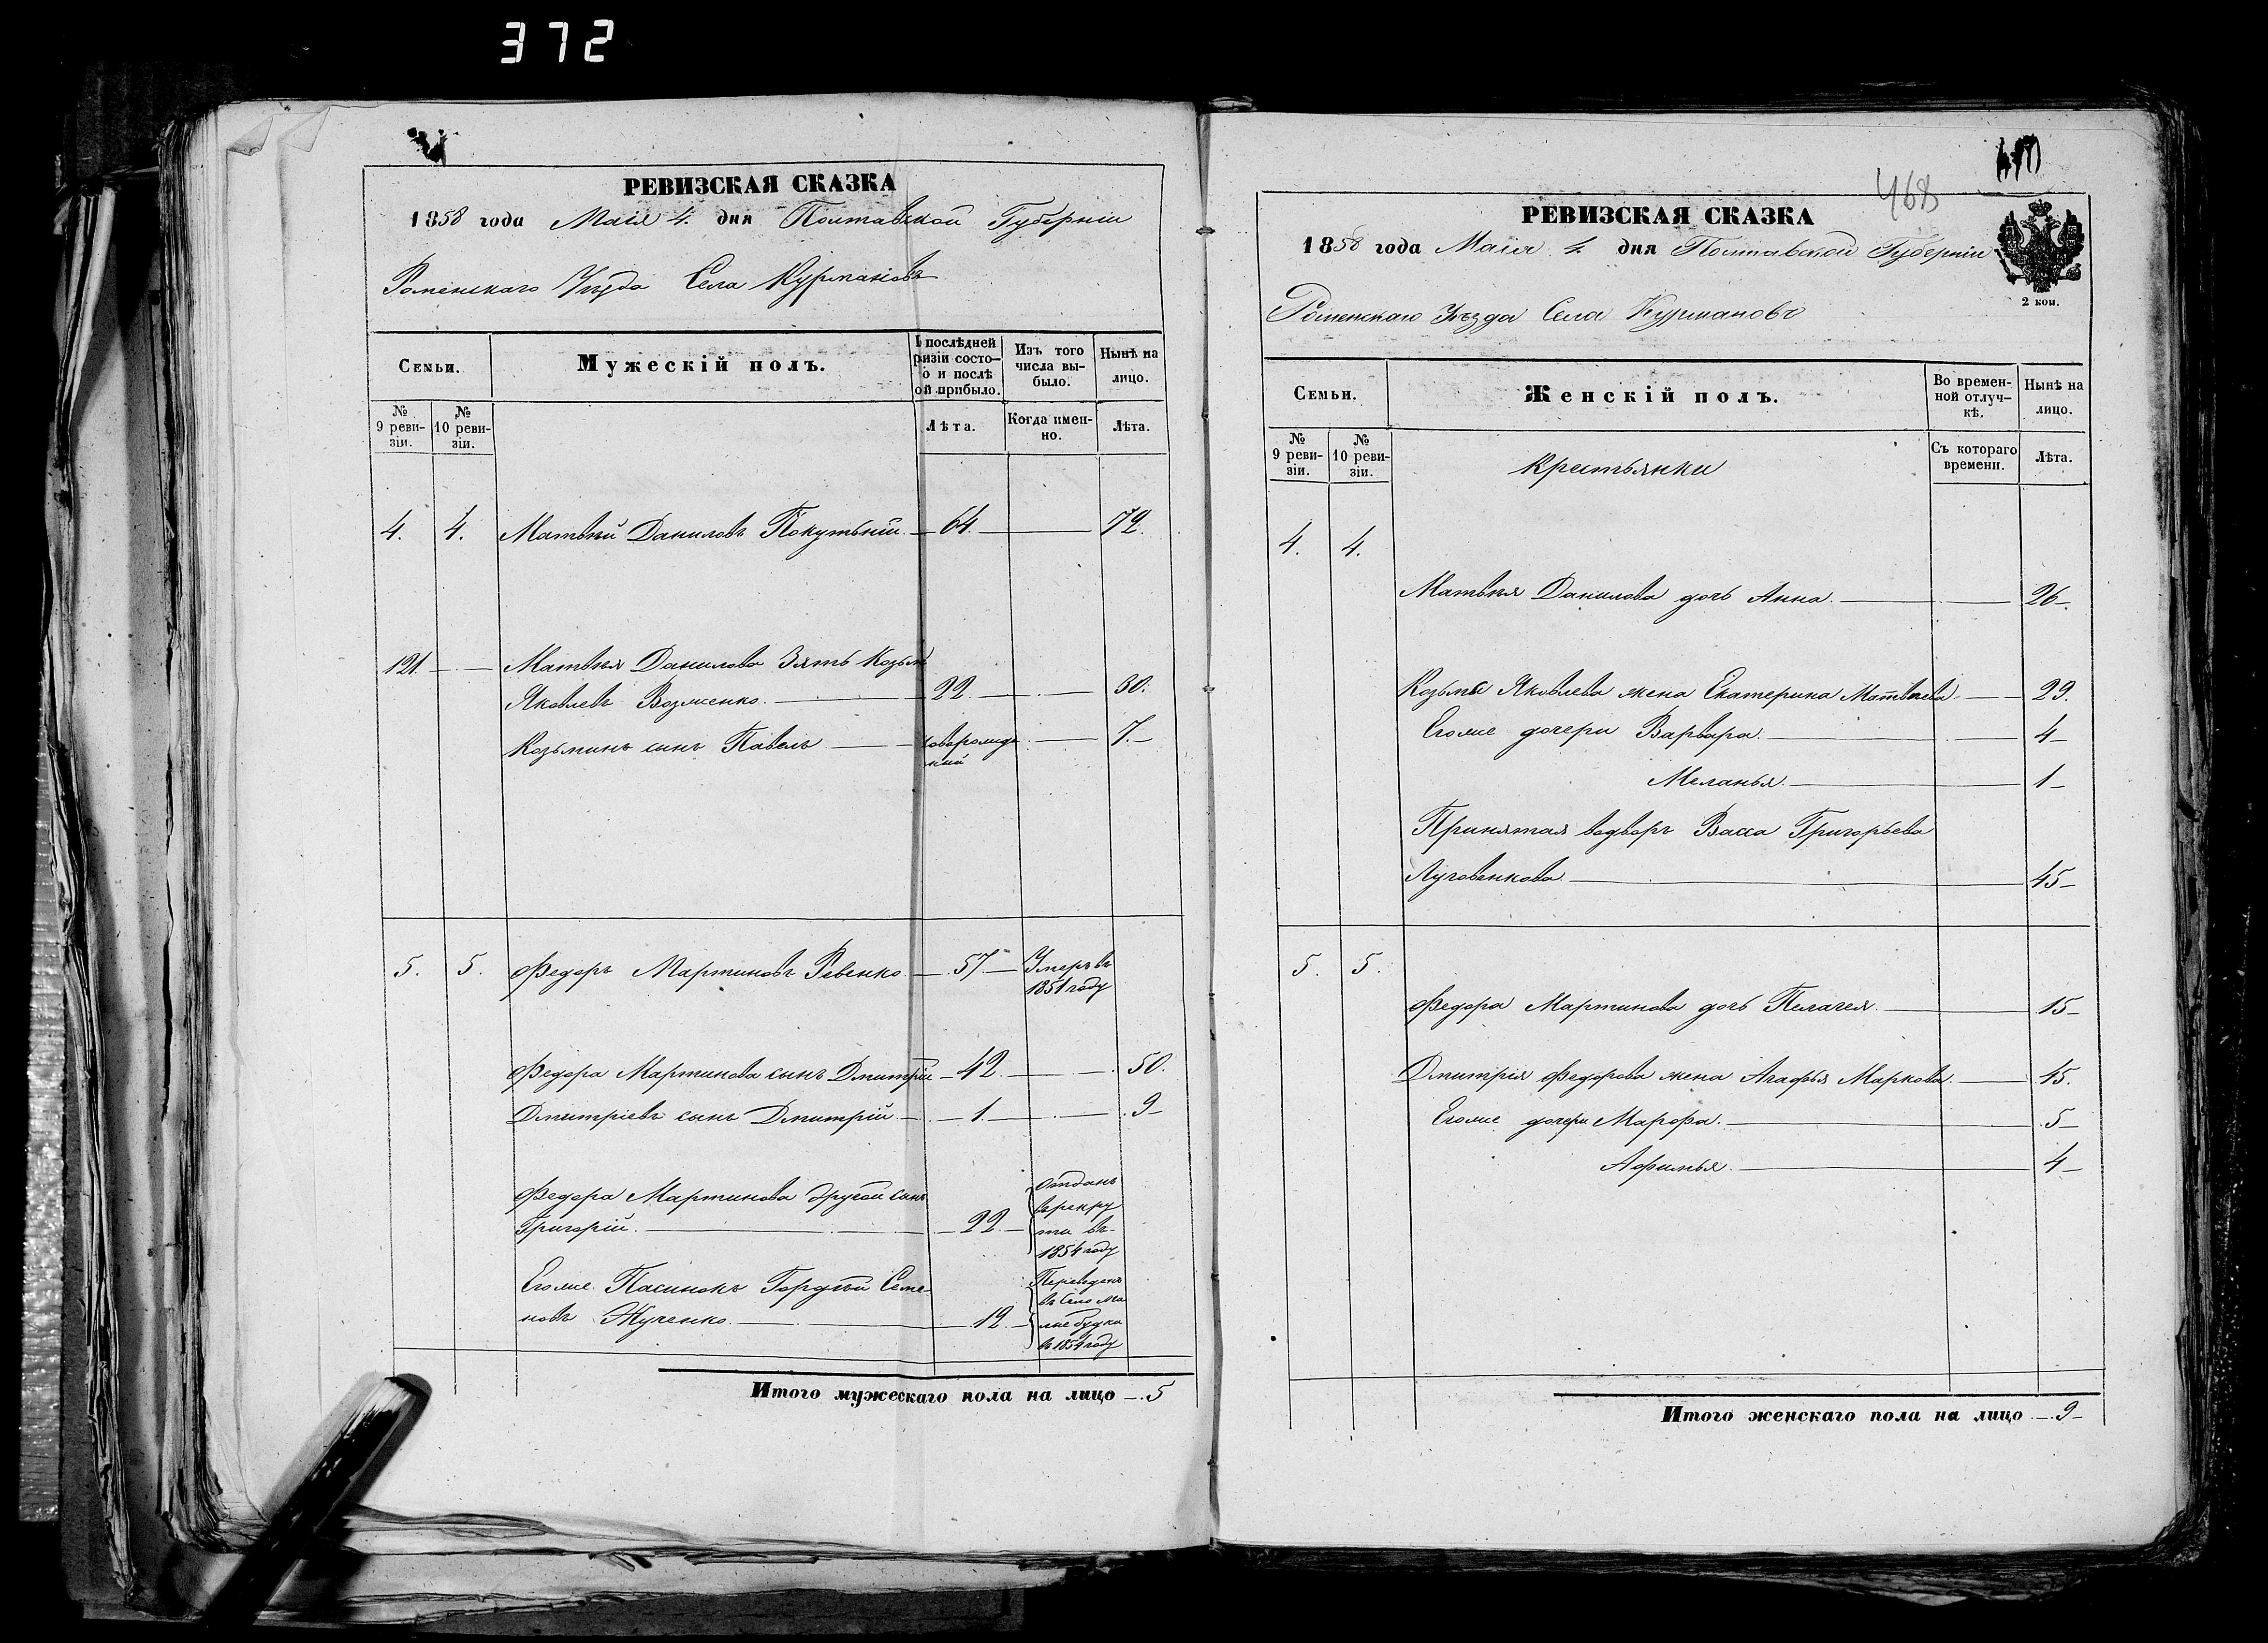 372
РЕВИЗСКАЯ СКАЗКА
1858 года Маія 4. дня Полтавской Губерніи
Роменскаго Уѣзда Села Курмановъ
Семьи.
Мужескій полъ.
послѣдней
ризіи состо-
о и послѣ
ой прибыло.
Изъ того
числа вы-
было.
Нынѣ на
лицо.
№
9 реви-
зіи.
№
10 реви-
зіи.
Лѣта.
Когда имен-
но.
Лѣта.
4. 4. Матвѣй Даниловъ Покутній. 64. 72.
121. Матвѣя Данилова Зять Козьма
Яковлевъ Возженко. 22. 30.
Козьминъ сынъ Павелъ новорожден
ный 7.
5. 5. Федоръ Мартиновъ Ревенко. 57 Умеръ въ
1851 году
Федора Мартинова сынъ Дмитрій 42. 50.
Дмитріевъ сынъ Дмитрій 1. 9
Федора Мартинова другой сынъ
Григорій. 22. Отданъ
въ рекру
ты въ
1854 году
Егоже Пасинокъ Гордѣй Семе-
новъ Жученко. 12. Переведенъ
въ Село
будки
въ 1854 году
Итого мужескаго пола на лицо 5
468
470
РЕВИЗСКАЯ СКАЗКА
1858 года Маія 4. дня Полтавской Губерніи
2 коп.
Роменскаго Уѣзда Села Курмановъ
Семьи.
Женскій полъ.
Во времен-
ной отлуч-
кѣ.
Нынѣ на
лицо.
№
9 реви-
зіи.
№
10 реви-
зіи.
Съ котораго
времени.
Лѣта.
Крестьянки
4. 4.
Матвѣя Данилова дочь Анна. 26.
Козьмы Яковлева жена Екатерина Матвѣева 29.
Егоже дочери Варвара. 4
Меланья. 1
Принятая водворъ Васса Григорьева
Луговенкова. 45
5. 5.
Федора Мартинова дочь Пелагея. 15
Дмитрія Федорова жена Агафья Маркова. 45.
Егоже дочери Марфа. 5
Афимья. 4
Итого женскаго пола на лицо 9